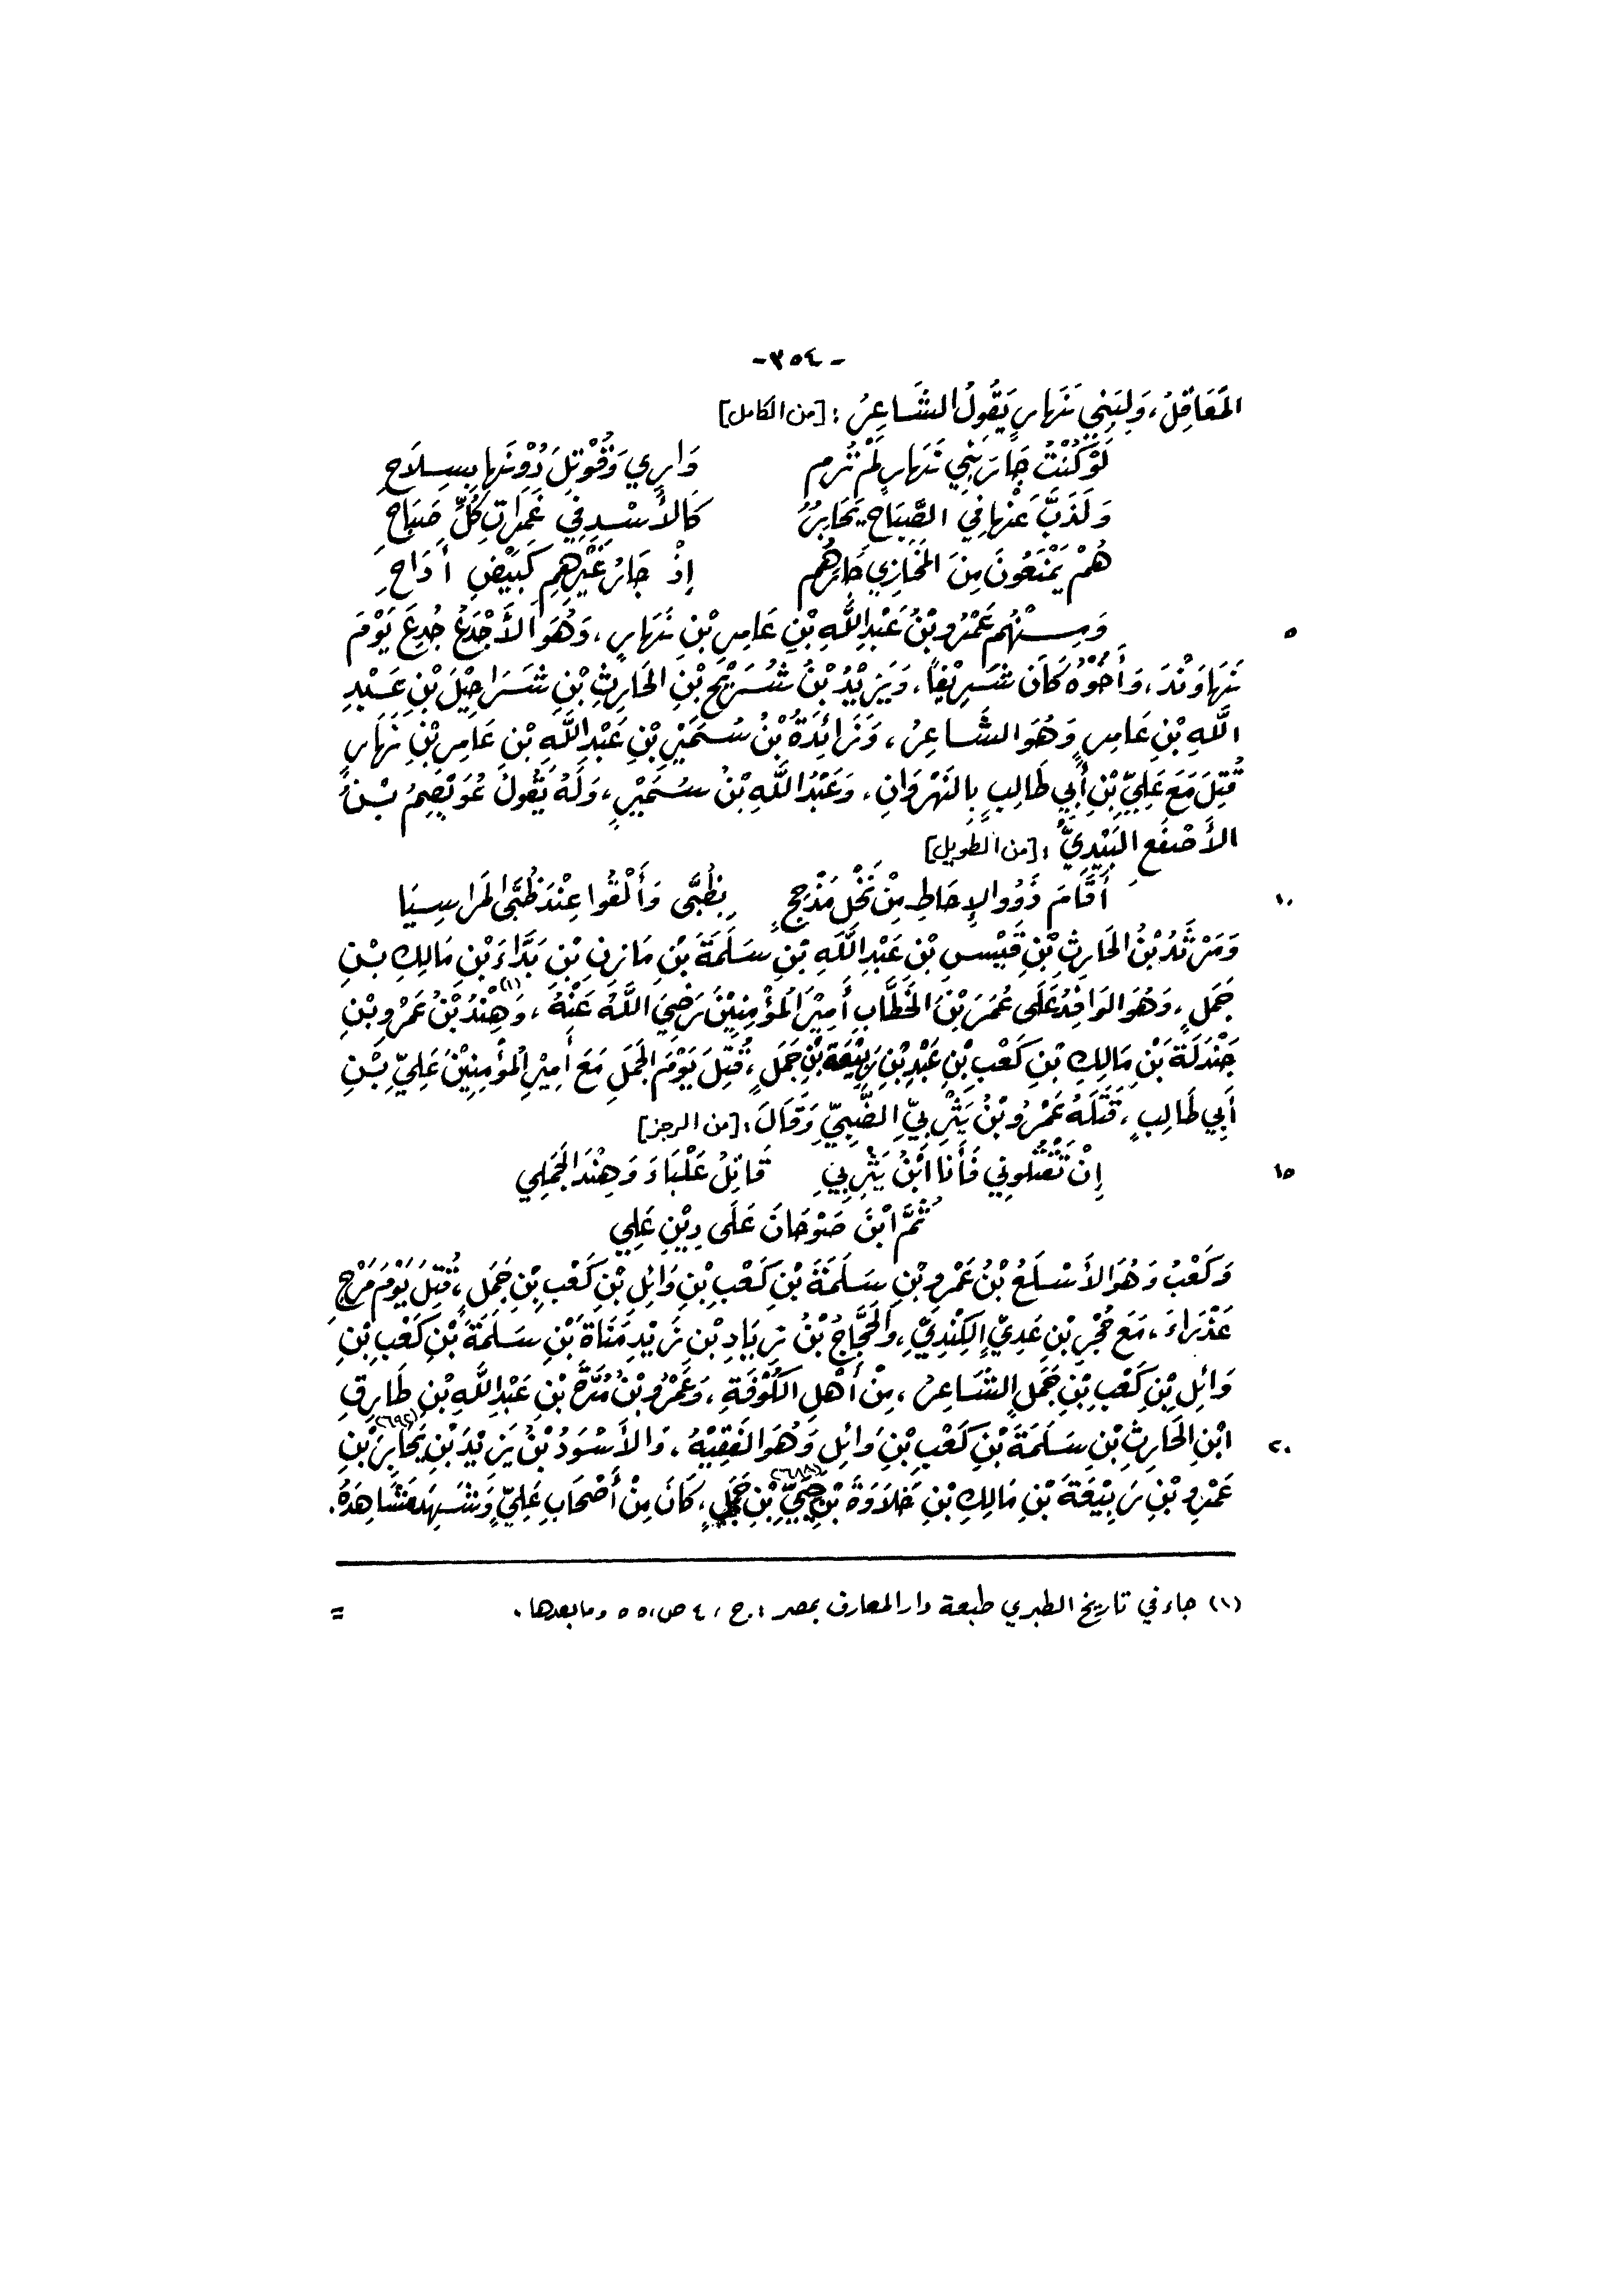 -٣٥٤-
المَعَاقِلُ، وَلِبَنِي نَهَارٍ يَقُولُ الشَّاعِرُ : [من الكامل]
لَوْ كُنْتُ جَارَ بَنِي نَهَارٍ لَمْ تُرَمِ دَارِي وَقُوْتِلَ دُوْنَهَا بِسِلَاحِ
وَلَذَبَّ عَنْهَا فِي الصَّبَاحِ يَحَابِرٌ كَالأُسْدِ فِي غَمَرَاتِ كُلِّ صَبَاحِ
هُمْ يَمْنَعُونَ مِنَ المَخَازِي جَارَهُم إِذْ جَارُ غَيْرِهِم كَبَيْضِ أَدَاحِ
وَمِنْهُم عَمْرُو بْنُ عَبْدِ اللَّهِ بْنِ عَامِرِ بْنِ نَهَارٍ، وَهُوَ الأَجْدَعُ جُدِعَ يَوْمَ ٥
نَهَاوَنْدَ، وَأَخُوْهُ كَانَ شَرِيْفاً، وَيَزِيْدُ بْنُ شُرَيْحِ بْنِ الحَارِثِ بْنِ شَرَاحِيْلَ بْنِ عَبْدِ
اللَّهِ بْنِ عَامِرٍ وَهُوَ الشَّاعِرُ، وَزَائِدَةُ بْنُ سُمَيْرِ بْنِ عَبْدِ اللَّهِ بْنِ عَامِرِ بْنِ نَهَارٍ
قُتِلَ مَعَ عَلِيِّ بْنِ أَبِي طَالِبٍ بِالنَهْرَوَانِ، وَعَبْدُ اللَّهِ بْنُ سُمَيْرٍ، وَلَهُ يَقُولُ عُوَيْصِمُ بْنُ
الأَصْفَعِ الزُبَيْدِيُّ : [من الطويل]
أَقَامَ ذَوُو الإِحَاطِ مِنْ نَخْلِ مَذْحِجٍ بِظُبَّى وَأَلْقُوا عِنْدَ ظُبَّى المَرَاسِيَا ١٠
وَمَرْثَدُ بْنُ الحَارِثِ بْنِ قَيْسِ بْنِ عَبْدِ اللَّهِ بْنِ سَلَمَةَ بْنِ مَازِنِ بْنِ بَدَّاءَ بْنِ مَالِكِ بْنِ
جَمَلٍ، وَهُوَ الوَافِدُ عَلَى عُمَرَ بْنِ الخَطَّابِ أَمِيْرِ المُؤْمِنِيْنَ رَضِيَ اللَّهُ عَنْهُ، وَهِنْدُ(١) بْنُ عَمْرِو بْنِ
جَنْدَلَةَ بْنِ مَالِكِ بْنِ كَعْبِ بْنِ عَبْدِ بْنِ رَبِيْعَةَ بْنِ جَمَلٍ، قُتِلَ يَوْمَ الجَمَلِ مَعَ أَمِيْرِ المُؤْمِنِيْنَ عَلِيِّ بْنِ
أَبِي طَالِبٍ، قَتَلَهُ عَمْرُو بْنُ يَثْرِبِيِّ الضَّبِيِّ وَقَالَ : [من الرجز]
إِنْ تَقْتُلُونِي فَأَنَا ابْنُ يَثْرِبِي قَاتِلُ عَلْبَاءَ وَهِنْدَ الجَمَلِي ١٥
ثُمَّ ابْنَ صَوْحَانَ عَلَى دِيْنِ عَلِي
وَكَعْبُ وَهُوَ الأَسْلَعُ بْنُ عَمْرِو بْنِ سَلَمَةَ بْنِ كَعْبِ بْنِ وَائِلِ بْنِ كَعْبِ بْنِ جَمَلٍ، قُتِلَ يَوْمَ مَرْجِ
عَذْرَاءَ، مَعَ حُجْرِ بْنِ عَدِيٍّ الكِنْدِيِّ، وَالحَجَّاجُ بْنُ زِيَادِ بْنِ زَيْدِ مَنَاةَ بْنِ سَلَمَةَ بْنِ كَعْبِ بْنِ
وَائِلِ بْنِ كَعْبِ بْنِ جَمَلٍ الشَّاعِرُ، مِنْ أَهْلِ الكُوْفَةِ، وَعَمْرُو بْنُ مُرَّةَ بْنِ عَبْدِ اللَّهِ بْنِ طَارِقِ
ابْنِ الحَارِثِ بْنِ سَلَمَةَ بْنِ كَعْبِ بْنِ وَائِلٍ وَهُوَ الفَقِيْهُ، وَالأَسْوَدُ بْنُ يَزِيْدَ بْنِ يَحَابِرَ(٢٦٩٤) بْنِ ٢٠
عَمْرِو بْنِ رَبِيْعَةَ بْنِ مَالِكِ بْنِ خَلَاوَةَ بْنِ حُيَيِّ(٢٦٨٨) بْنِ جَمَلٍ، كَانَ مِنْ أَصْحَابِ عَلِيٍّ وَشَهِدَ مَشَاهِدَهُ.
(١) جاء في تاريخ الطبري طبعة دار المعارف بمصر :. ج ، ٤ ص، ٥٥ وما بعدها . =